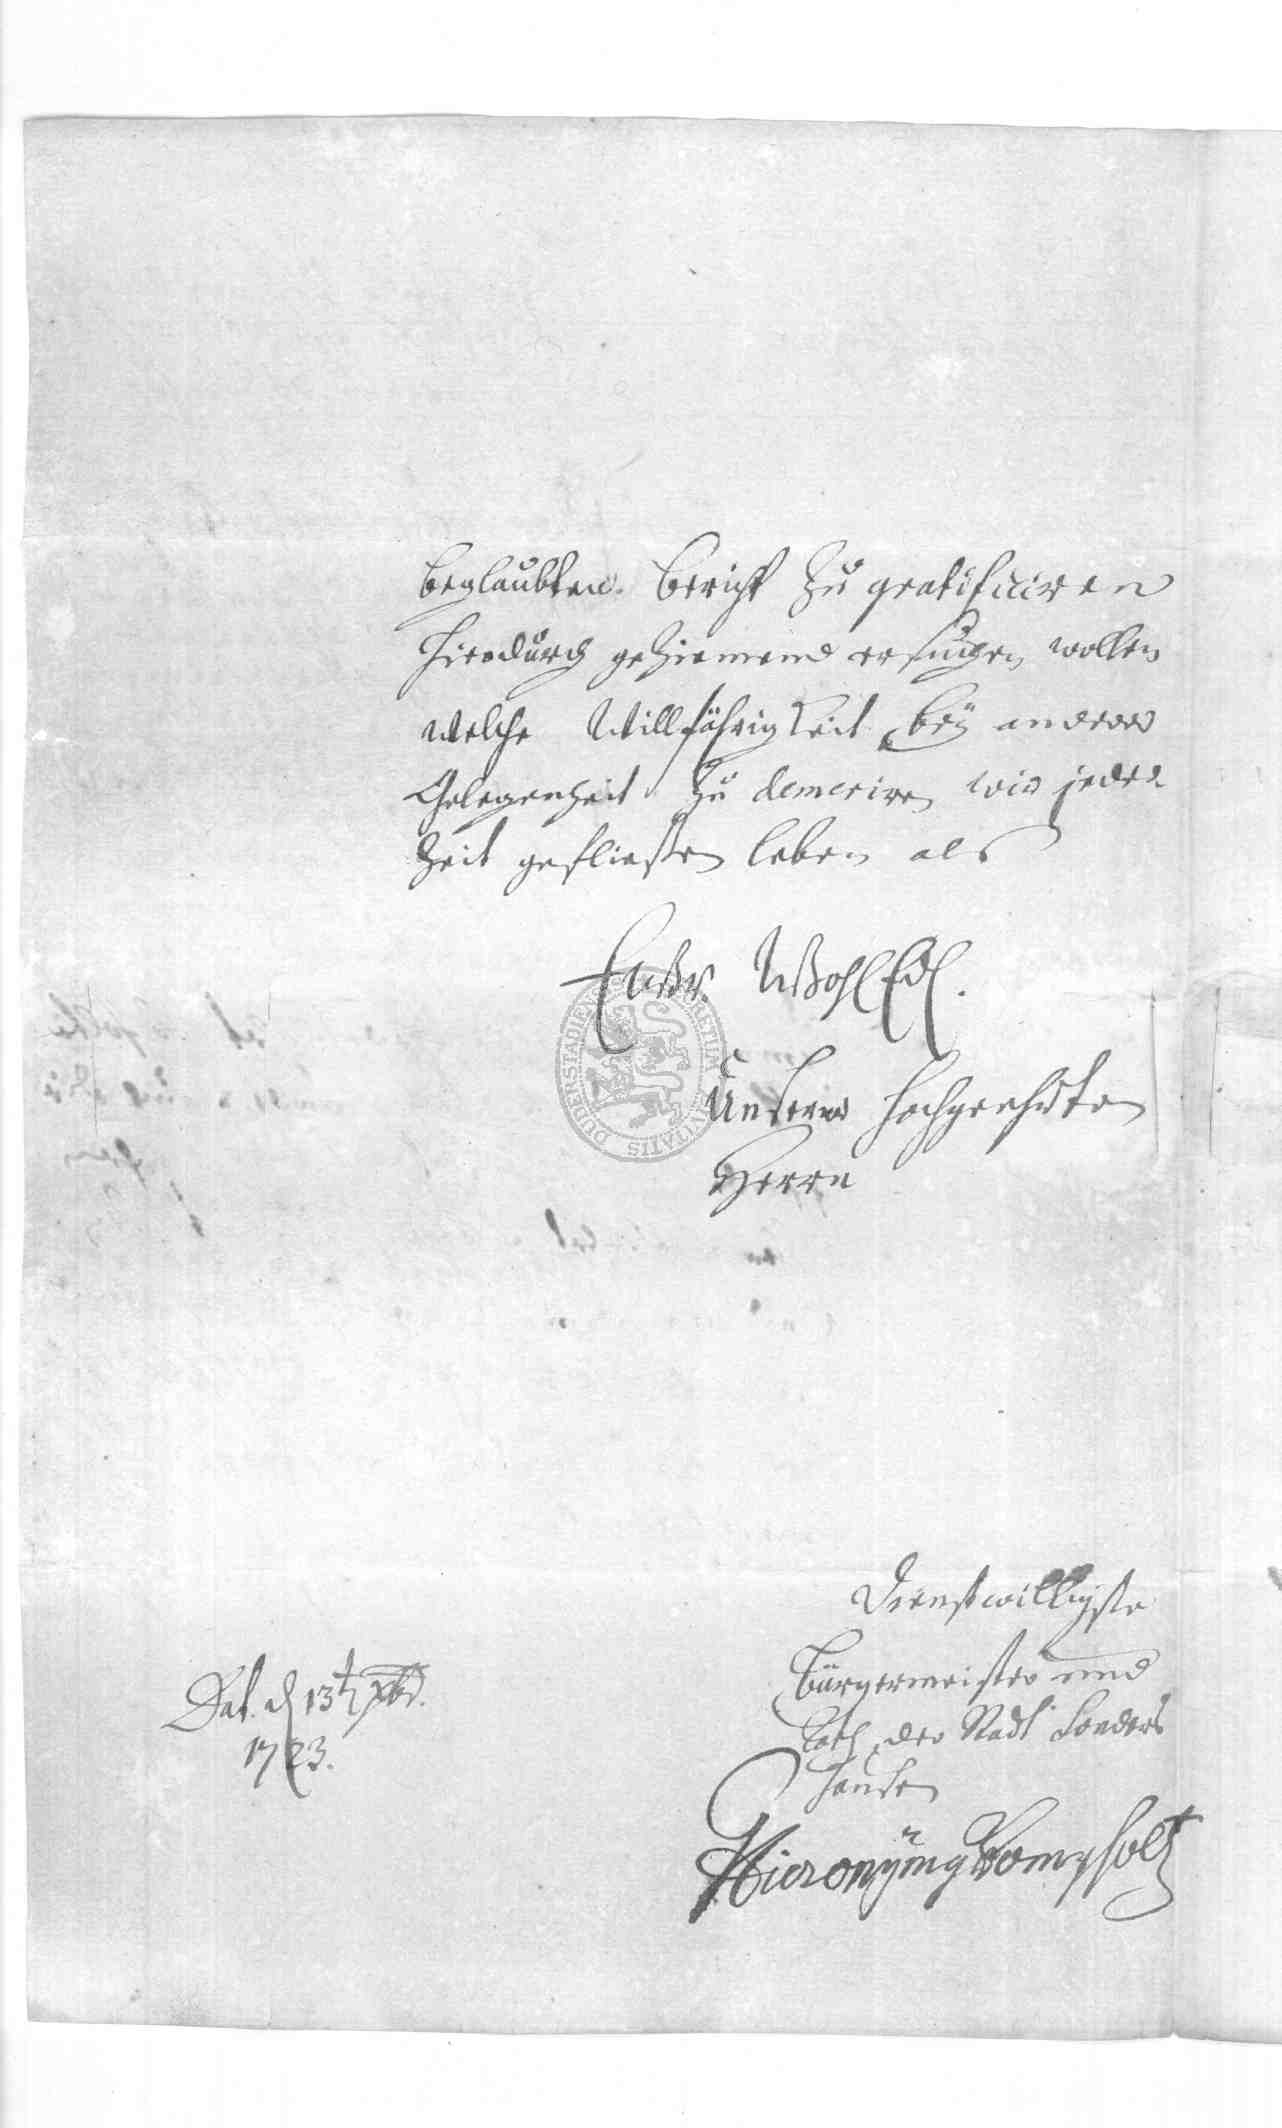 beglaubten bericht zu gratificiren
hierdurch geziemend ersuchen wollen
welche Willfährigkeit bey anderer
Gelegenheit zu demeriren wir jeder
Zeit gefließen leben als
Ewr. WohlEdl.
Unserer hochgeehrten
Herrn
Dienstwilligste
Bürgermeister und
Rath der Stadt Sonders
hausen
Dat. d 13t Xbr.
1723.
Hieronymg